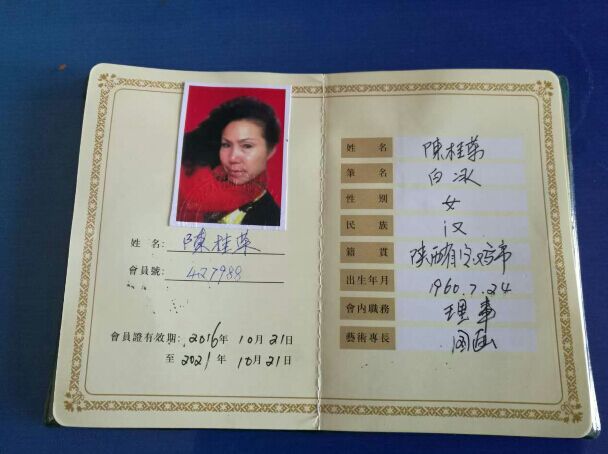 姓名: 陳桂荣
會員號: 427988
會員證有效期: 2016年 10月21日
至 2021年 10月21日
姓 名 陳桂荣
筆 名 白冰
性 别 女
民 族 汉
籍 貫 陕西省宝鸡市
出生年月 1960.7.24
會内職務 理事
藝術專長 国画